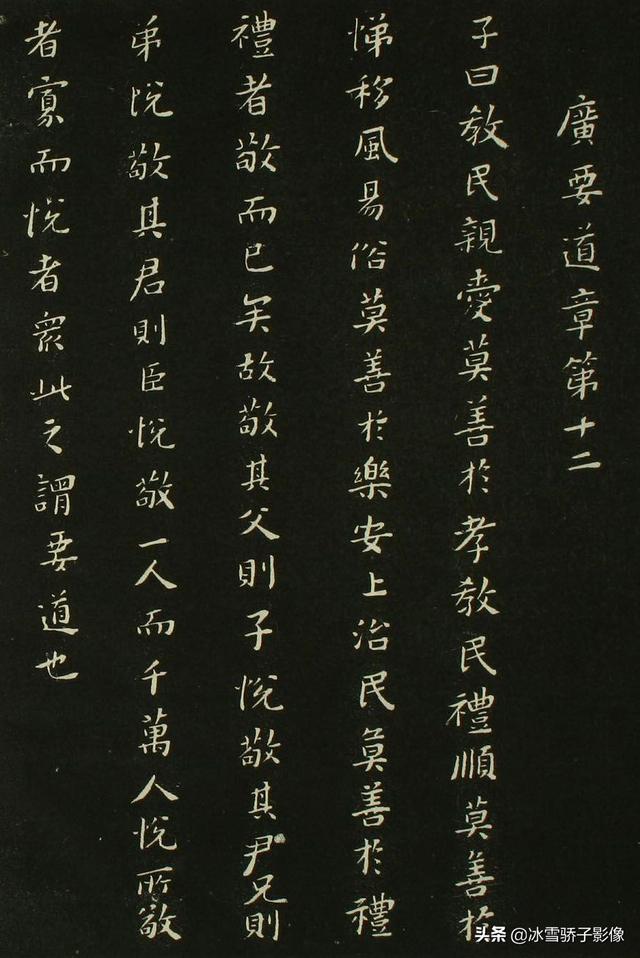 廣要道章第十二
子曰教民親愛莫善於孝教民禮順莫善於
悌移風易俗莫善於樂安上治民莫善於禮
禮者敬而已矣故敬其父則子悅敬其尹兄則
弟悅敬其君則臣悅敬一人而千萬人悅所敬
者寡而悅者衆此之謂要道也
头条 @冰雪骄子影像